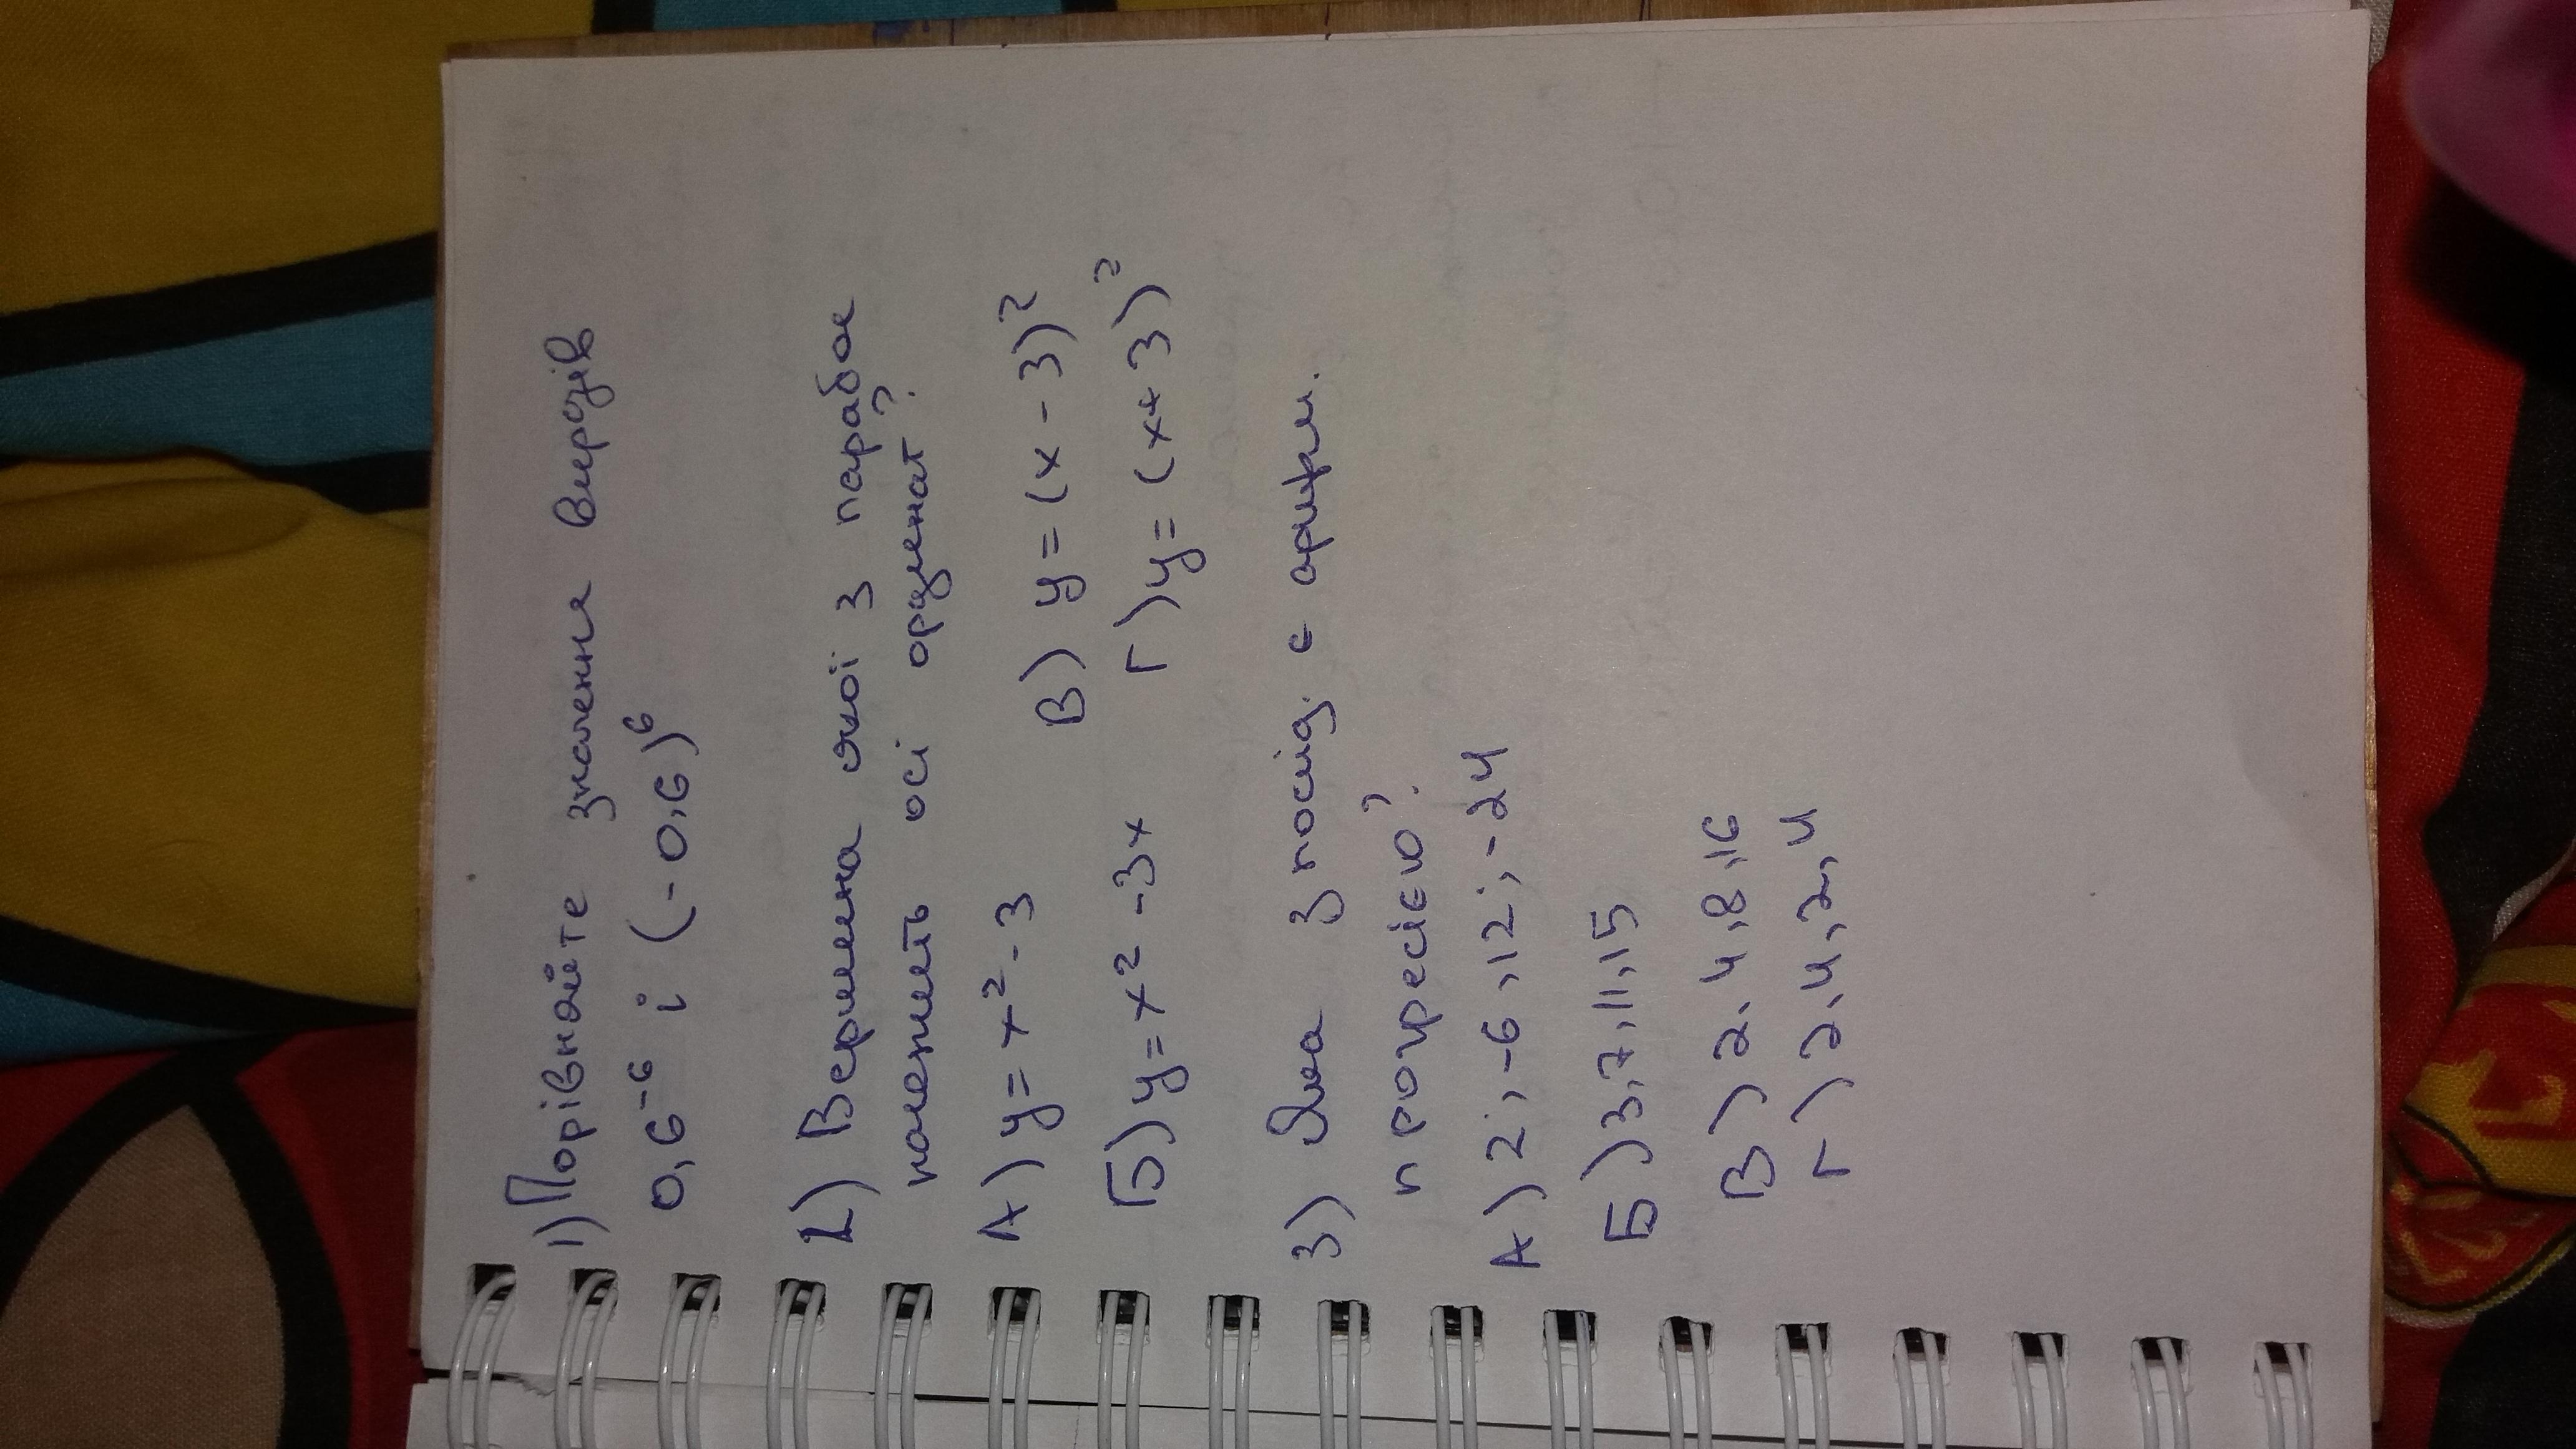 1) Порівнайте значення виразів
0,6⁻⁶ і (-0,6)⁶
2) Вершина якої з парабол
належить осі ординат?
А) y = x² - 3
В) y = (x - 3)²
Б) y = x² - 3x
Г) y = (x + 3)²
3) Яка з послід. є арифм.
прогресією?
А) 2; -6, 12; -24
Б) 3, 7, 11, 15
В) 2, 4, 8, 16
Г) 2, 4, 2, 4